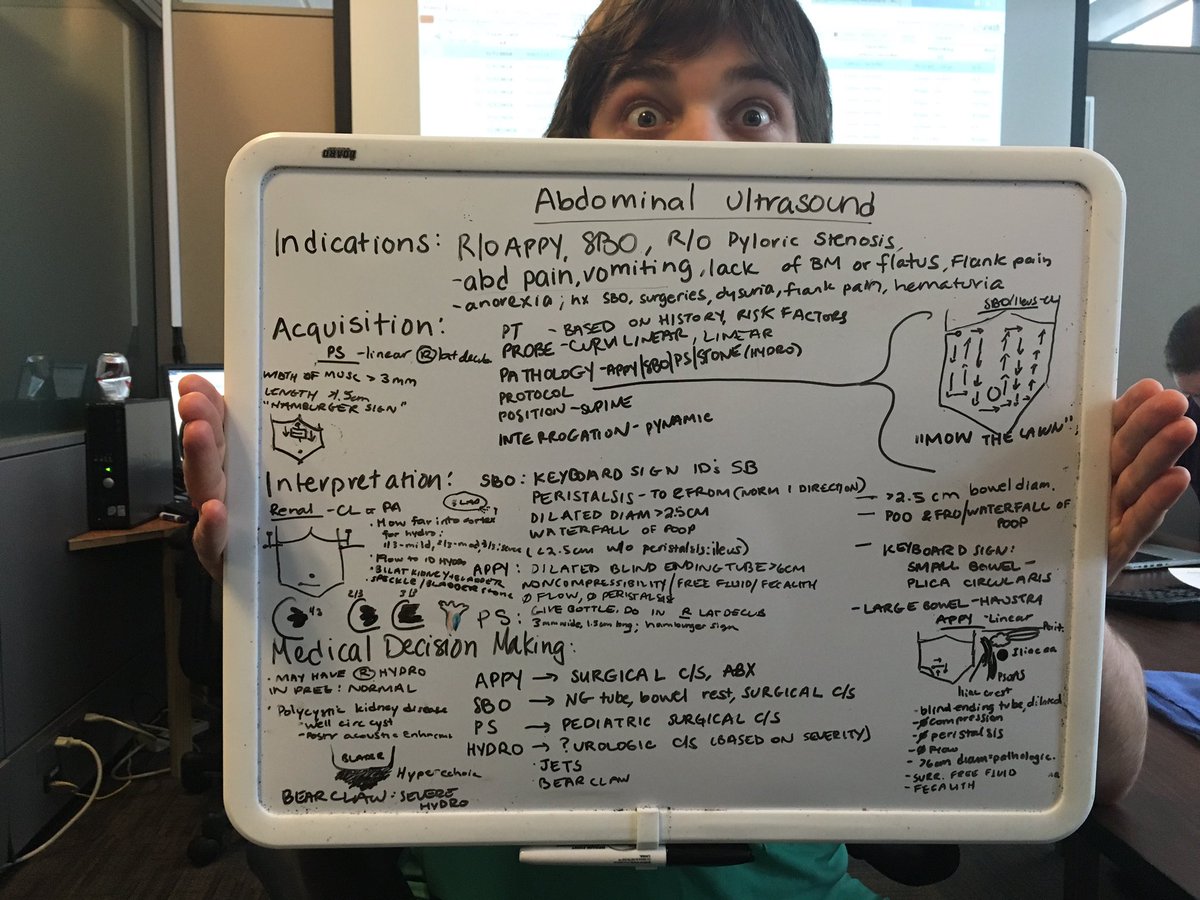 Abdominal Ultrasound
Indications: R/O APPY, SBO, R/O Pyloric Stenosis,
-abd pain, vomiting, lack of BM or flatus, Flank pain
-anorexia; hx SBO, surgeries, dysuria, flank pain, hematuria
Acquisition:
PS -linear Ⓡ lat decub
WIDTH OF MUSC > 3mm
LENGTH >1.5cm
"HAMBURGER SIGN"
PT - BASED ON HISTORY, RISK FACTORS
PROBE - CURVILINEAR, LINEAR
PATHOLOGY - APPY/SBO/PS/STONE/(HYDRO)
PROTOCOL
POSITION - SUPINE
INTERROGATION - DYNAMIC
"MOW THE LAWN"
Interpretation:
Renal - CL or PA
• How far into cortex
for hydro:
1/3-mild, 2/3-mod, 3/3-severe
• Flow to ID HYDRO
• BILAT KIDNEY & BLADDER
2/3
3/3
SBO: KEYBOARD SIGN ID's SB
PERISTALSIS - TO & FROM (NORM 1 DIRECTION)
DILATED DIAM > 2.5CM
WATERFALL OF POOP
(<2.5cm w/o peristalsis: ileus)
APPY: DILATED BLIND ENDING TUBE > 6CM
NONCOMPRESSIBILITY/FREE FLUID/FECALITH
Ø FLOW, Ø PERISTALSIS
PS: GIVE BOTTLE, DO IN R LAT DECUB
3mm wide, 1.5cm long; hamburger sign
— >2.5 cm bowel diam.
— POO & FRO/WATERFALL OF
POOP
— KEYBOARD SIGN:
SMALL BOWEL -
PLICA CIRCULARIS
- LARGE BOWEL - HAUSTRA
APPY - Linear
Psoas
Iliac crest
- blind ending tube, dilated
- Ø compression
- Ø peristalsis
- Ø flow
- >6cm diam=pathologic.
- SURR. FREE FLUID
- FECALITH
Medical Decision Making:
• MAY HAVE Ⓡ HYDRO
IN PREG: NORMAL
• Polycystic kidney disease
- well circ cyst
- Poster acoustic enhancm
Hyperechoic
BEAR CLAW: SEVERE
HYDRO
APPY → SURGICAL C/S, ABX
SBO → NG tube, bowel rest, SURGICAL C/S
PS → PEDIATRIC SURGICAL C/S
HYDRO → ? UROLOGIC C/S (BASED ON SEVERITY)
• JETS
• BEAR CLAW